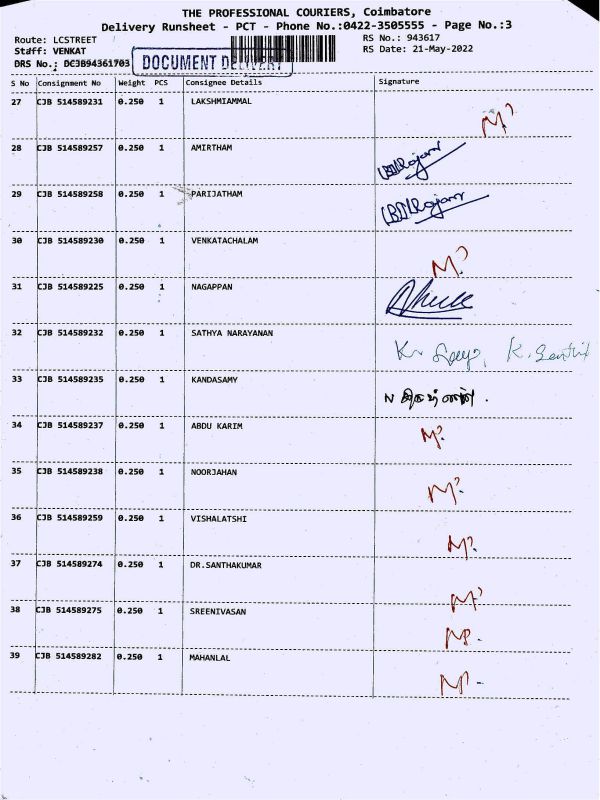 THE PROFESSIONAL COURIERS, Coimbatore
Delivery Runsheet - PCT - Phone No.:0422-3505555 - Page No.:3
Route: LCSTREET RS No.: 943617
Staff: VENKAT RS Date: 21-May-2022
DRS No.: DCJB94361703 DOCUMENT DELIVERY
S No Consignment No Weight PCS Consignee Details Signature
27 CJB 514589231 0.250 1 LAKSHMIAMMAL
28 CJB 514589257 0.250 1 AMIRTHAM
29 CJB 514589258 0.250 1 PARIJATHAM
30 CJB 514589230 0.250 1 VENKATACHALAM
31 CJB 514589225 0.250 1 NAGAPPAN
32 CJB 514589232 0.250 1 SATHYA NARAYANAN
33 CJB 514589235 0.250 1 KANDASAMY
34 CJB 514589237 0.250 1 ABDU KARIM
35 CJB 514589238 0.250 1 NOORJAHAN
36 CJB 514589259 0.250 1 VISHALATSHI
37 CJB 514589274 0.250 1 DR.SANTHAKUMAR
38 CJB 514589275 0.250 1 SREENIVASAN
39 CJB 514589282 0.250 1 MAHANLAL